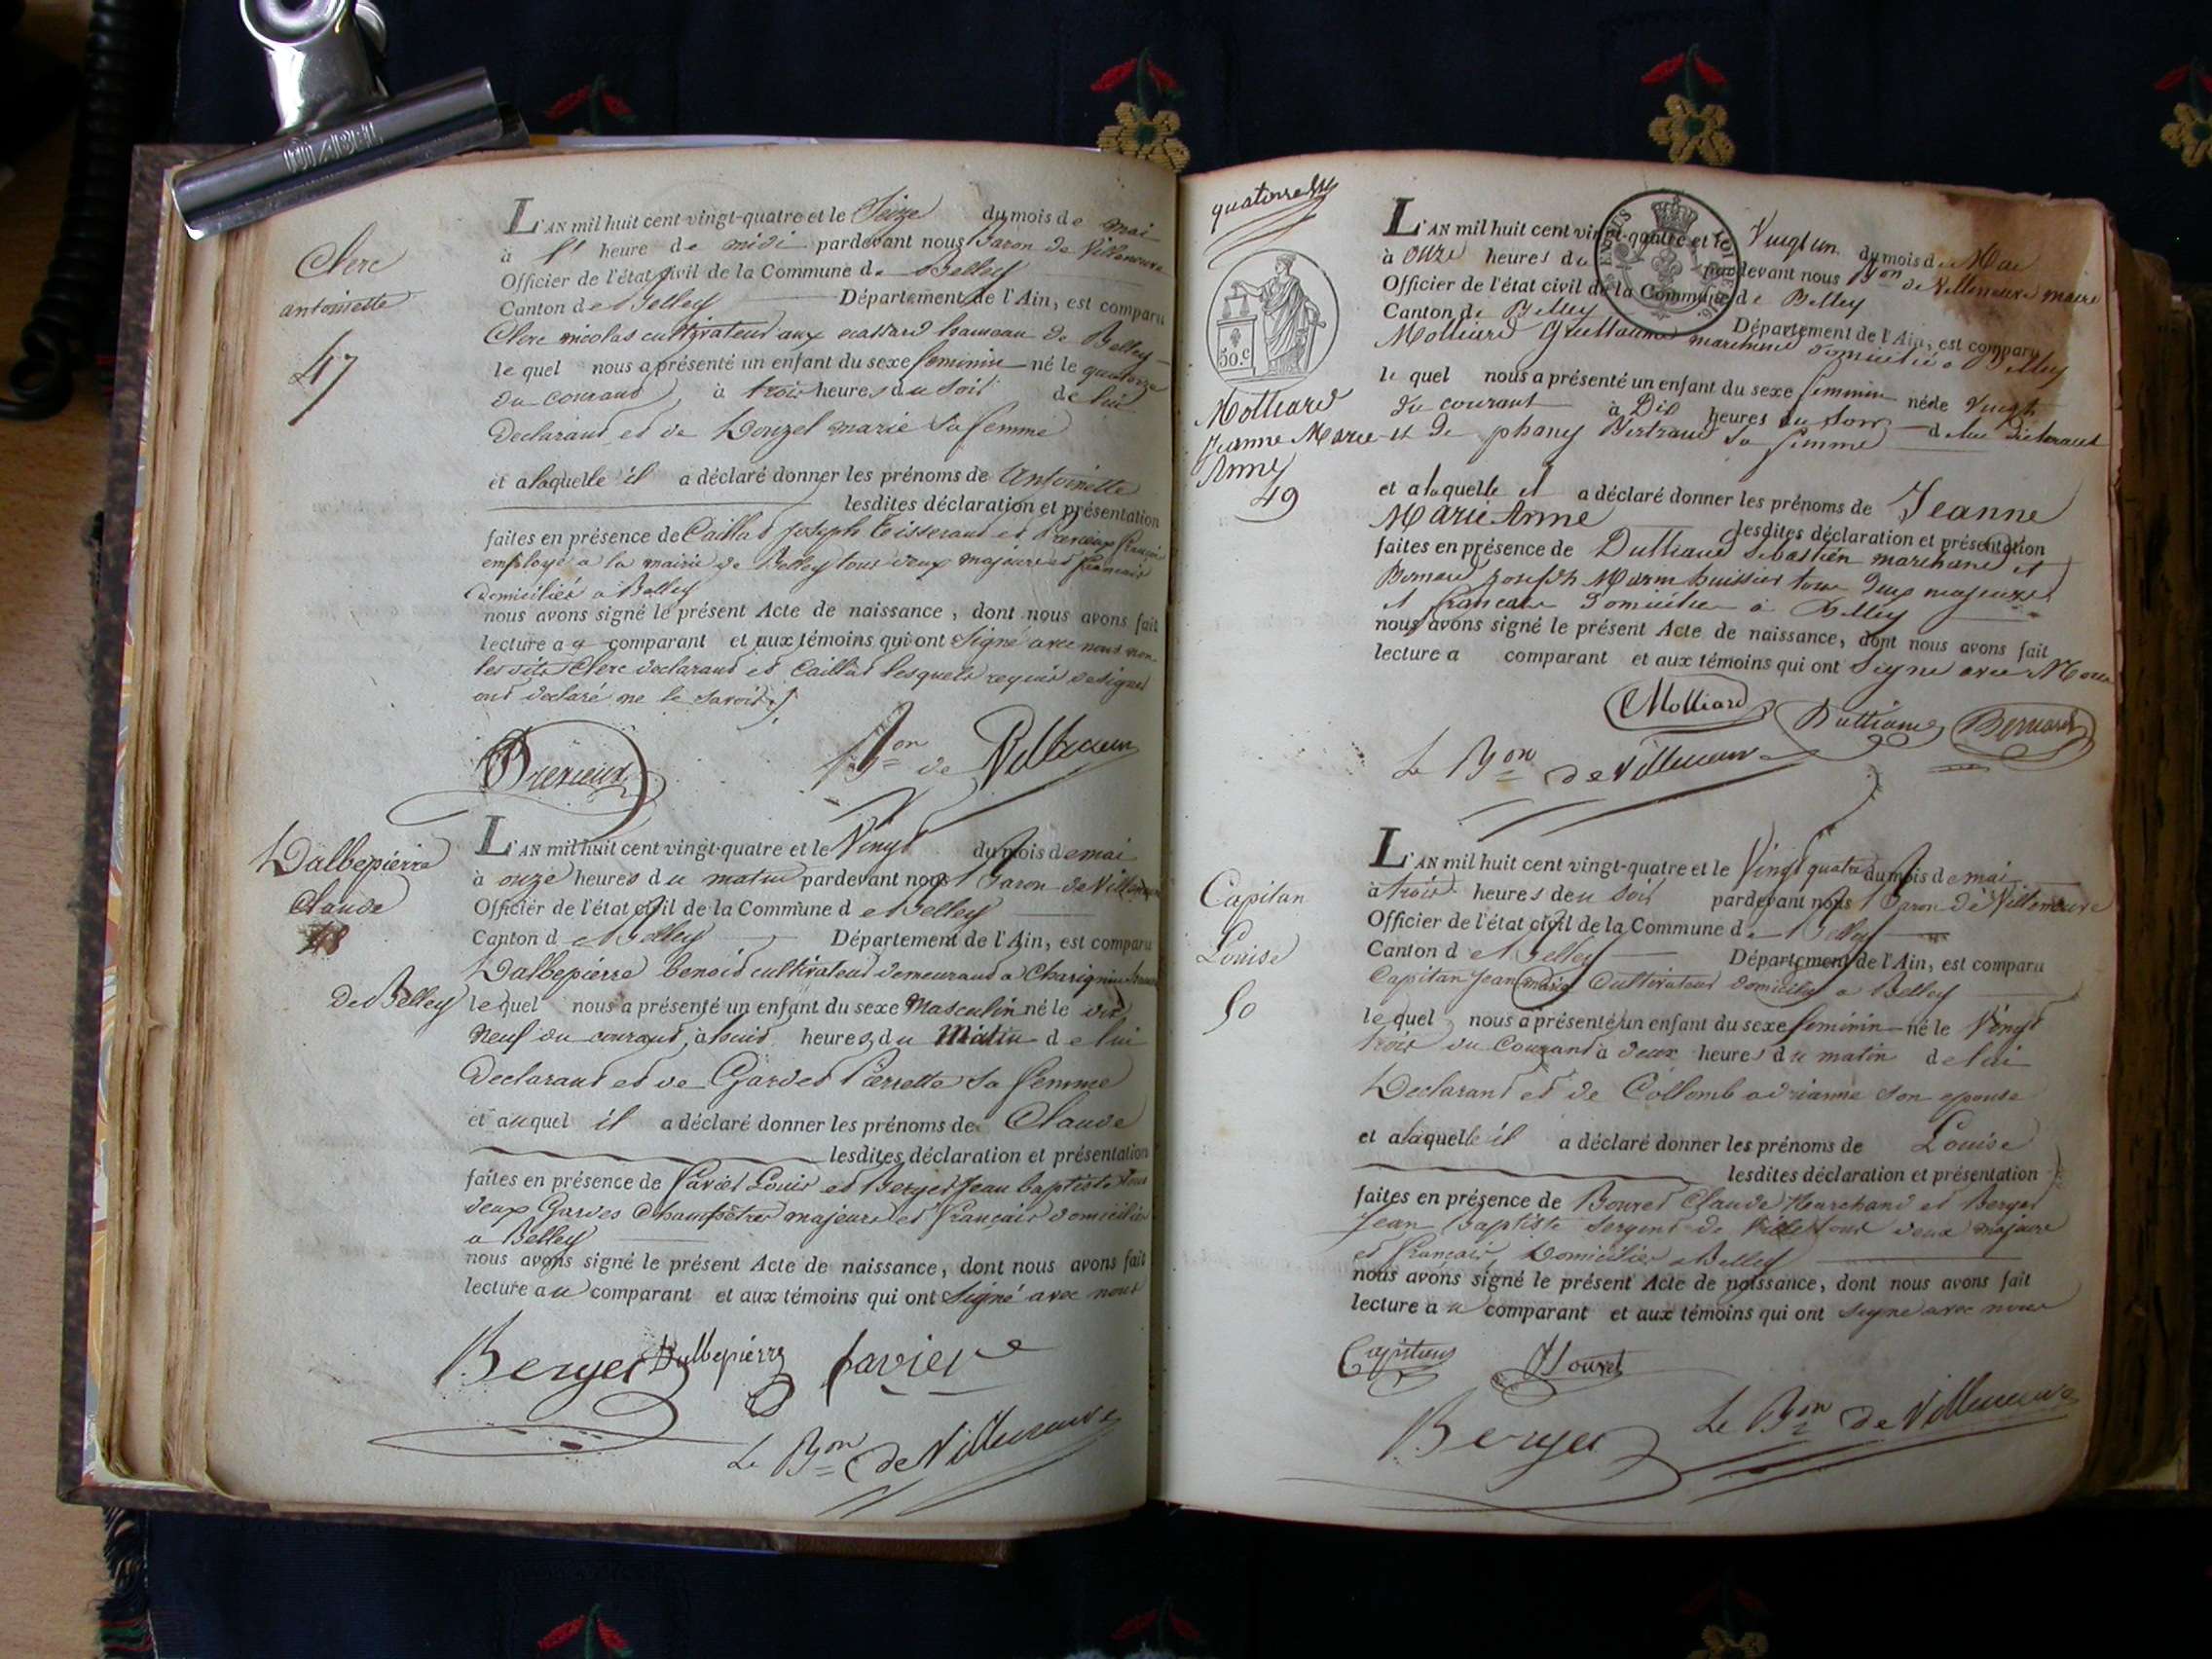 Clerc
antoinette
47
L'AN mil huit cent vingt-quatre et le Seize du mois de mai
à heure de midi pardevant nous Baron de Villeneuve
Officier de l'état civil de la Commune de Belley
Canton de Belley Département de l'Ain, est comparu
Clerc nicolas cultivateur aux hameau de Belley
le quel nous a présenté un enfant du sexe feminin né le quatorze
du courant, à trois heures du soir de lui
Declarant et de Donzel marie sa femme
et a laquelle il a déclaré donner les prénoms de Antoinette
lesdites déclaration et présentation
faites en présence de Caillat joseph tisserand et françois
employé a la mairie de Belley tous deux majeurs et français
domiciliés a Belley
nous avons signé le présent Acte de naissance, dont nous avons fait
lecture au comparant et aux témoins qui ont Signé avec nous non
les dits Clerc declarant et Caillat lesquels requis de signer
ont declaré ne le savoir.
Bon de Villeneuve
Dalbepierre
Claude
48
L'AN mil huit cent vingt-quatre et le Vingt du mois de mai
à onze heures du matin pardevant nous Baron de Villeneuve
Officier de l'état civil de la Commune de Belley
Canton de Belley Département de l'Ain, est comparu
Dalbepierre benoit cultivateur demeurant a Charignin hameau
de Belley le quel nous a présenté un enfant du sexe Masculin né le dix
neuf du courant, à huit heures du Matin de lui
Declarant et de Gardet Pierrette sa femme
et auquel il a déclaré donner les prénoms de Claude
lesdites déclaration et présentation
faites en présence de Favier Louis et Berger Jean baptiste tous
deux Gardes Champêtres majeurs et français domiciliés
a Belley
nous avons signé le présent Acte de naissance, dont nous avons fait
lecture au comparant et aux témoins qui ont Signé avec nous
Berger Dalbepierre favier
Le Bon de Villeneuve
quatorze
50.c
Molliard
Jeanne Marie
Anne
49
L'AN mil huit cent vingt-quatre et le Vingt un du mois de Mai
à onze heures du pardevant nous Bon de Villeneuve maire
Officier de l'état civil de la Commune de Belley
Canton de Belley Département de l'Ain, est comparu
Molliard Guillaume marchand domicilié a Belley
le quel nous a présenté un enfant du sexe feminin né de Vingt
du courant à Dix heures du soir de lui declarant
et de phany Bertrand sa femme
et a laquelle il a déclaré donner les prénoms de Jeanne
Marie Anne lesdites déclaration et présentation
faites en présence de Dulliand Sebastien marchand et
Bernard joseph Marin huissier tous deux majeurs
et francais domiciliés à Belley
nous avons signé le présent Acte de naissance, dont nous avons fait
lecture a comparant et aux témoins qui ont Signé avec Nous
Molliard Dulliand Bernard
Le Bon de Villeneuve
Capitan
Louise
50
L'AN mil huit cent vingt-quatre et le Vingt quatre du mois de mai
à trois heures deu soir pardevant nous Baron de Villeneuve
Officier de l'état civil de la Commune de Belley
Canton de Belley Département de l'Ain, est comparu
Capitan Jean marie Cultivateur domicilié a Belley
le quel nous a présenté un enfant du sexe feminin né le Vingt
trois du Courant à deux heures du matin de lui
Declarant et de Collomb adrianne son epouse
et a laquelle il a déclaré donner les prénoms de Louise
lesdites déclaration et présentation
faites en présence de Bouvet Claude Marchand et Berger
Jean Baptiste Sergent de Ville tous deux majeurs
et français, Domiciliés a Belley
nous avons signé le présent Acte de naissance, dont nous avons fait
lecture au comparant et aux témoins qui ont signé avec nous
Capitan Bouvet
Berger Le Bon de Villeneuve